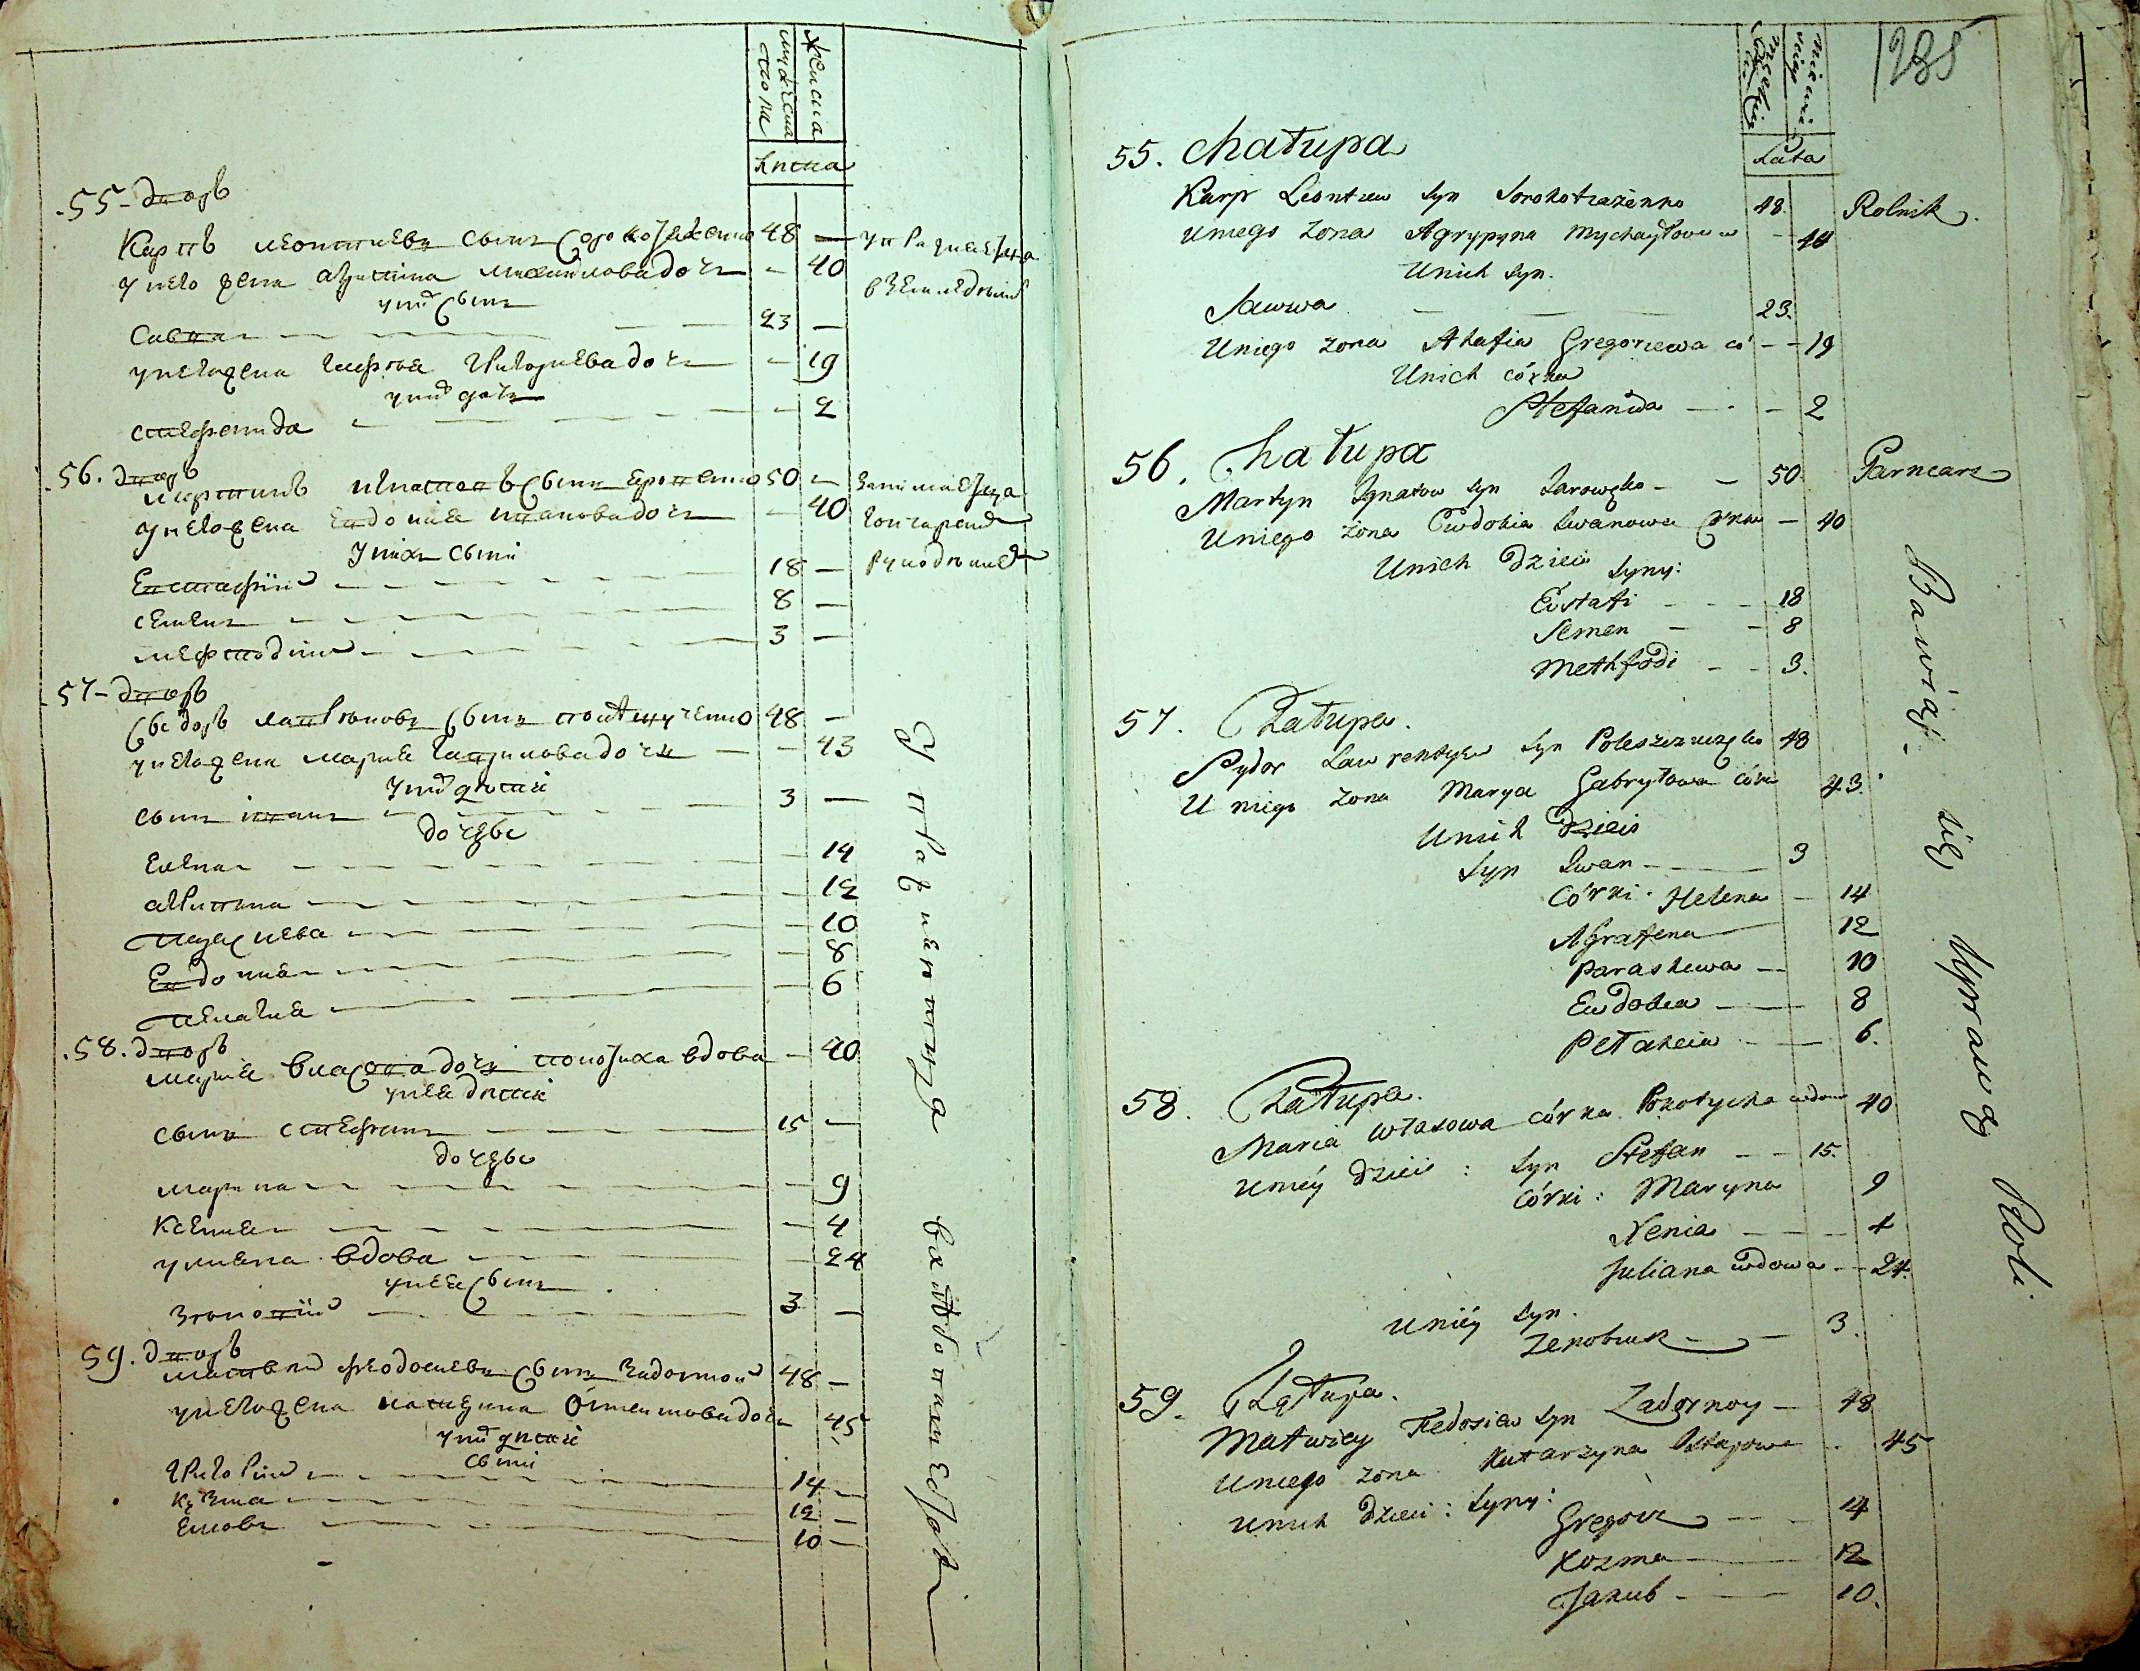 мужеска
пола
женска
лѣта
55 дворъ
Карпъ леонтиевъ сынъ 48 —
у него жена агрипина михаиловадочъ — 40
унихъ сынъ
савва 23 —
унегожена агафия григориевадочъ — 19
унихъ дочь
стефанида — 2
56. дворъ
мартинъ игнатовъ сынъ 50 — занимаеца
унегожена евдокия ивановадочъ — 40 гончарским
унихъ сыни
Евстафий 18 — рукоделием
семенъ 8 —
мефтодий 3 —
57 дворъ
сидоръ сынъ 48 —
унегожена мария гавриловадочъ — 43
унихъ дети
сынъ иванъ 3 —
дочери
Елена 14
агрипина 12
параскева 10
Евдокия 8
пелагия 6
58. дворъ
мария власова дочъ вдова — 40
унея дети
сынъ стефанъ 15 —
дочери
марина — 9
Ксения — 4
улияна вдова — 24
унея сынъ
зѣновий 3 —
59. дворъ
матвей феодосиевъ сынъ задорной 48 —
унегожена катерина дочъ 45
унихъ дети
сыни
григорий 14 —
козма 12 —
яковъ 10 —
1285
Męzkiey
Lata
55. Chałupa
Karp Leontiew syn 48. Rolnik.
uniego żona Agrypyna Mychayłowna — 40
Unich syn.
Sawwa 23.
Uniego żona Ahafia Gregoriewa có — 19
Unich córka
Stefanida — 2
56. Chałupa
Martyn Ignatow syn — 50 Garncarz
Uniego żona Ewdokia Iwanowa córka — 40
Unich Dzieci
syny:
Eustafi 18
Semen 8
Methfodi 3.
57. Chałupa.
Sydor Lawrentyew syn 48
U niego żona Marya Gabryłowa córka 43.
Unich Dzieci
Syn Iwan 3
Córki: Helena 14
Agrafena 12
Paraskewa 10
Eudokia 8
Pełaheia 6.
58. Chałupa.
Maria Własowa córka wdowa 40
uniéy Dzieci: syn Stefan 15.
córki: Maryna 9
Xenia 4
Juliana wdowa 24.
uniéy syn.
Zenobiusz 3.
59. Chałupa.
Matwiey Fedosiew syn Zadornoy — 48
Uniego żona Katarzyna 45
Unich Dzieci: syny:
Gregorz 14
Kozma 12
Jakub 10.
Bawiąz się Uprawą Roli